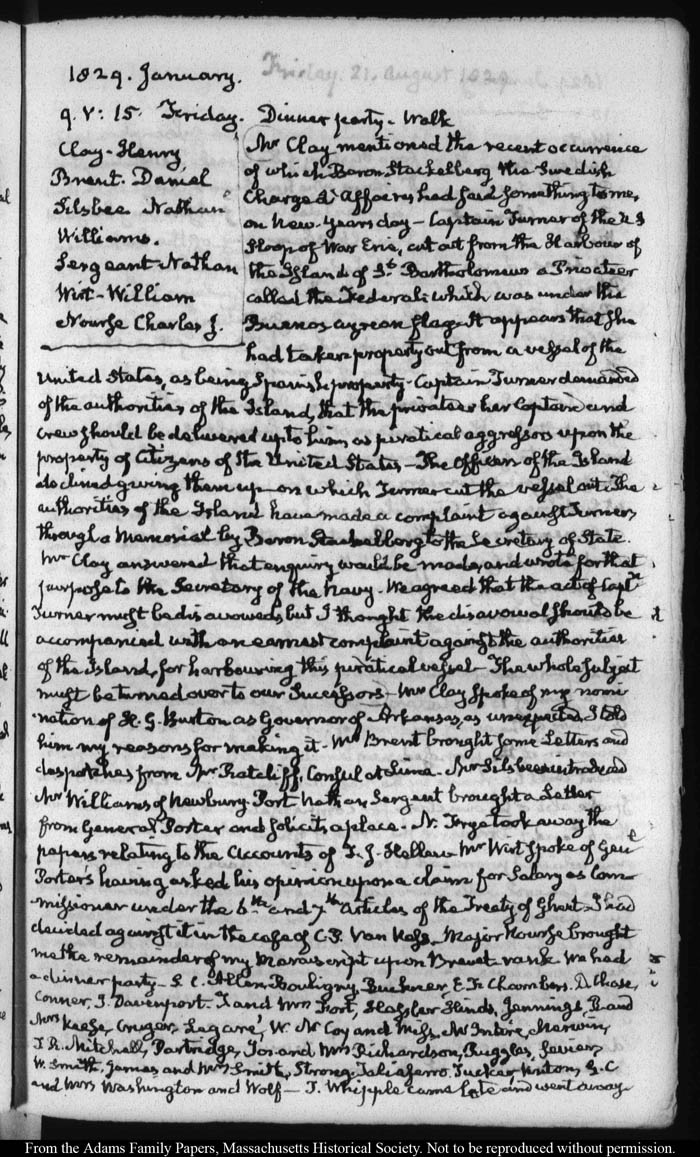 1829. January.
9. V: 15. Friday. Dinner party - Walk
Clay - Henry
Brent. Daniel
Silsbee Nathan
Williams.
Sergeant - Nathan
Wirt - William
Nourse Charles J.
Mr Clay mentioned the recent occurrence
of which Baron Stackelberg the Swedish
Chargé d'Affaires had said something to me,
on New-Years day - Captain Turner of the U.S
Sloop of War Erie, cut out from the Harbour of
the Island of St. Bartholomews a Privateer
called the Federal, which was under the
Buenos ayrean flag. It appears that she
had taken property out from a vessel of the
United States, as being Spanish property - Captain Turner demanded
of the authorities of the Island, that the privateer her Captain and
crew should be delivered up to him, as piratical aggressors upon the
property of Citizens of the United States - The Officers of the Island
declined giving them up - on which Turner cut the vessel out. The
authorities of the Island have made a complaint against Turner,
through a Memorial by Baron Stackelberg to the Secretary of State.
Mr Clay answered that enquiry would be made, and wrote for that
purpose to the Secretary of the Navy - We agreed that the act of Captn
Turner must be disavowed, but I thought the disavowal should be
accompanied with an earnest complaint against the authorities
of the Island, for harbouring this piratical vessel - The whole subject
must be turned over to our Successors - Mr Clay spoke of my nomi
-nation of H. G. Burton as Governor of Arkansas, as unexpected. I told
him my reasons for making it - Mr Brent brought some Letters and
despatches from Mr Ratcliff, Consul at Lima - Mr Silsbee introduced
Mr Williams of Newbury-Port. Nathan Sergeant brought a Letter
from General Porter and solicits a place - N. Frye took away the
papers relating to the Accounts of T. J. - Mr Wirt spoke of Genl
Porter's having asked his opinion upon a claim for Salary as Com
-missioner under the 6th and 7th Articles of the Treaty of Ghent - I had
decided against it in the case of C. P. Van Ness - Major Nourse brought
me the remainder of my Manuscript upon Brevet rank. We had
a dinner party - S. C. Allen, Bouligny, Buckner, E. F. Chambers. D. Chase,
Conner, J. Davenport. T and Mrs Fort, Hassler Hinds, Jennings, B and
Mrs Keese, Cruger, Legaré, W. McCoy and Miss, McIntire, Merwin,
T. R. Mitchell, Partridge, Jos and Mrs Richardson, Ruggles, Sevier,
W. Smith, James and Mrs Smith, Strong, Taliaferro. Tucker, Vinton, G. C
and Mrs Washington and Wolf - T. Whipple came late and went away
From the Adams Family Papers, Massachusetts Historical Society. Not to be reproduced without permission.